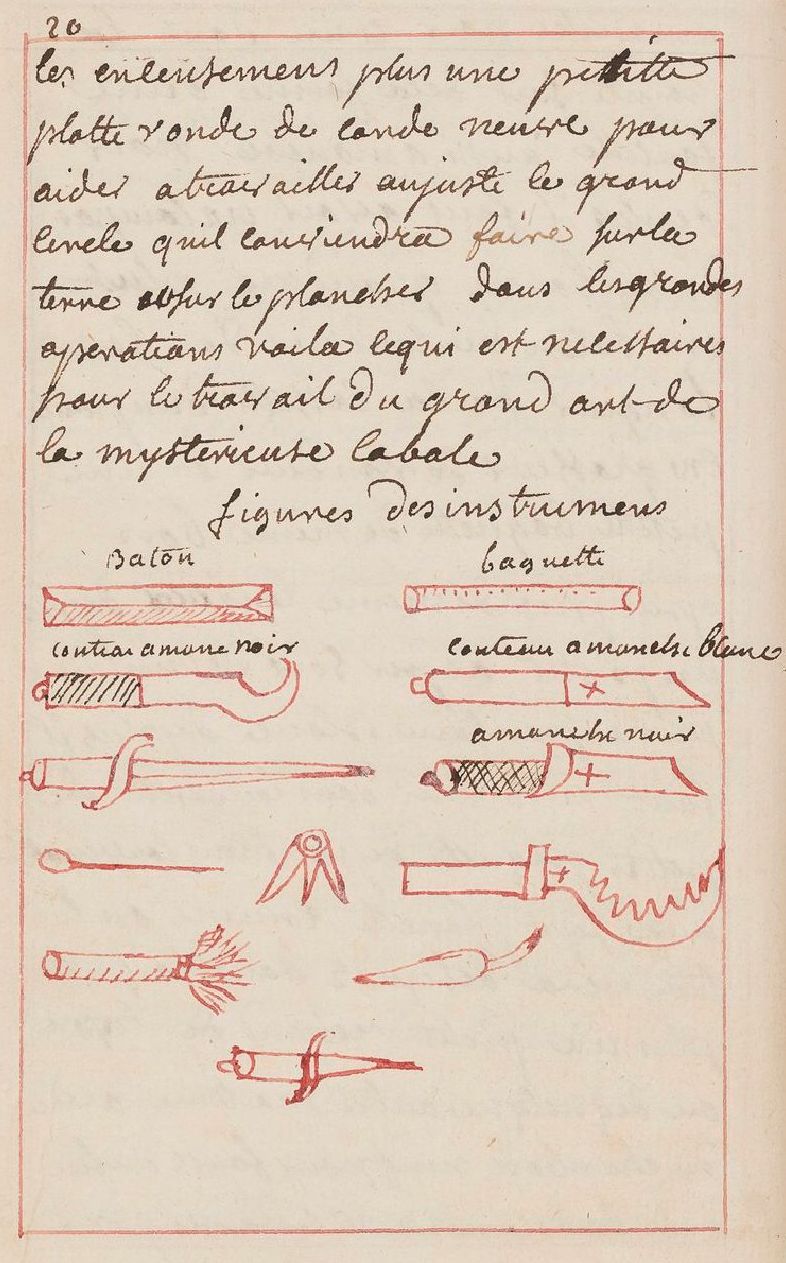 20
les encensemens plus une petitte
plotte ronde de corde neuve pour
aider a travailler aujuste le grand
cercle quil conviendra faire sur la
terre ou sur le plancher dans les grandes
operations voila cequi est necessaires
pour le travail du grand art de
la mysterieuse cabale
figures des instrumens
Baton baguette
couteau amanc noir couteau amanche blanc
amanche noir